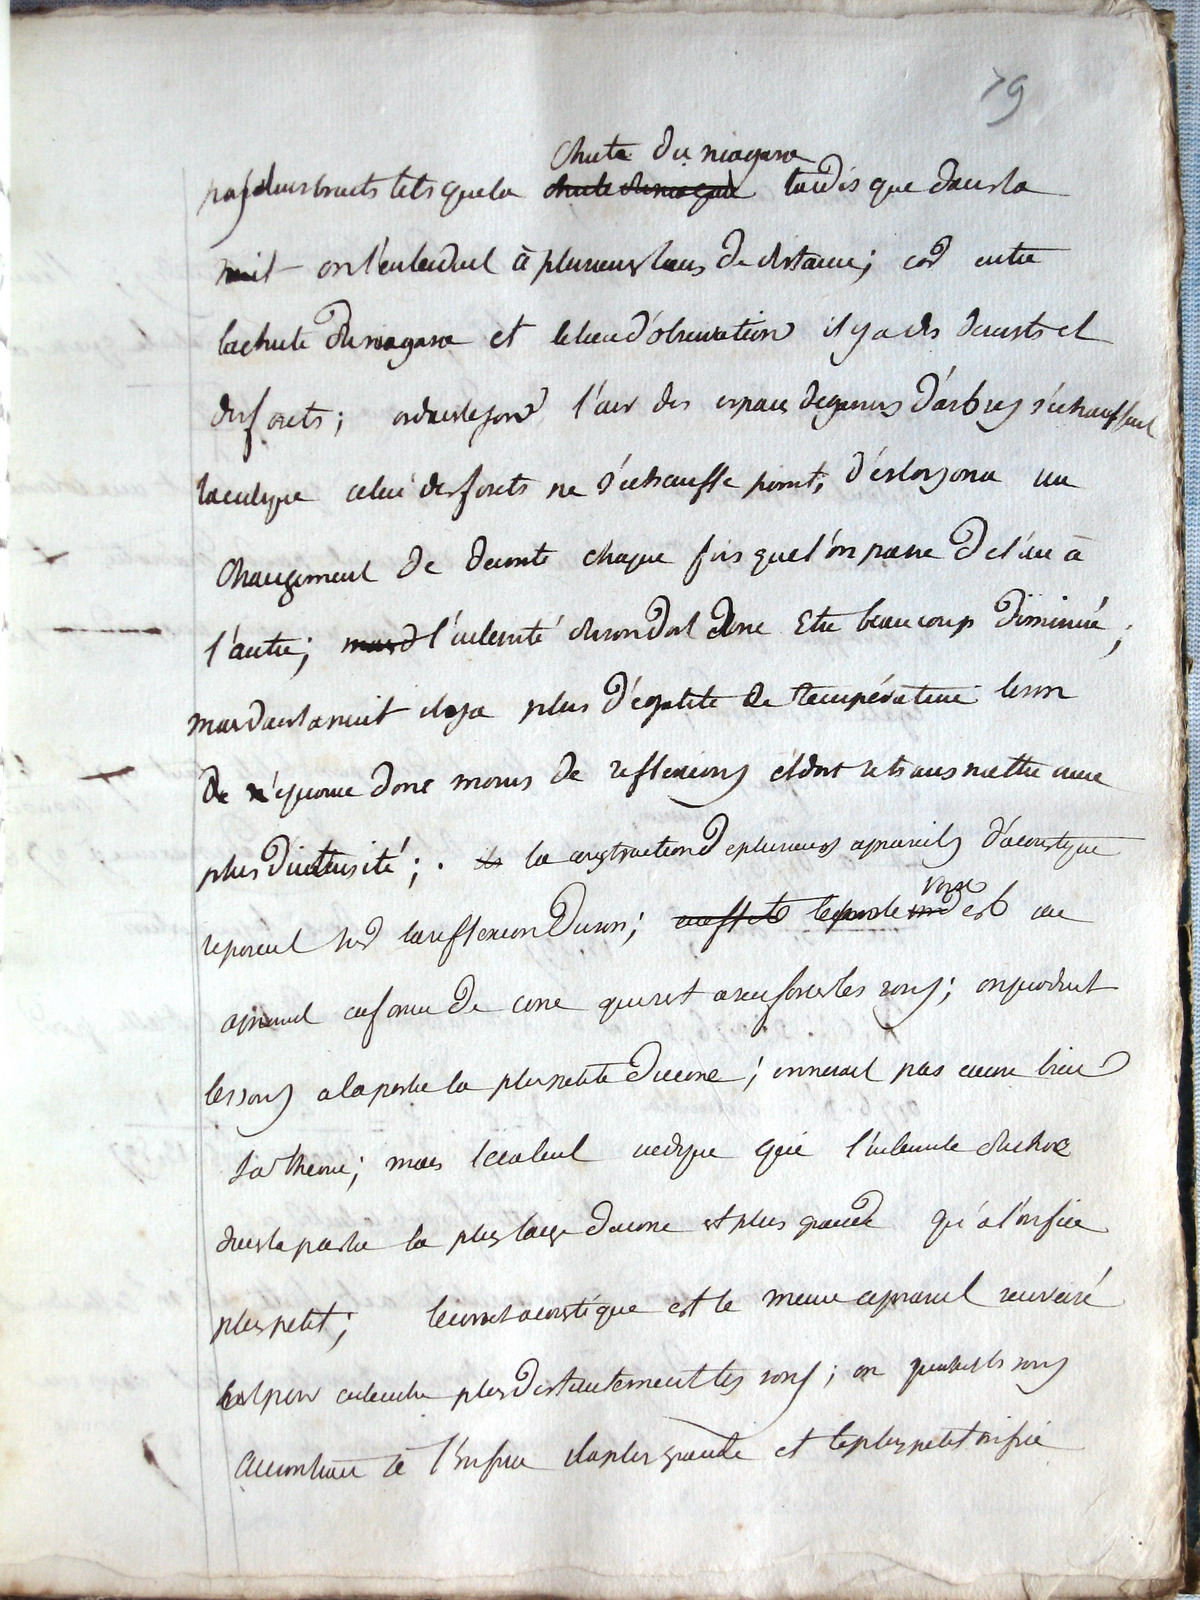 79
chute du niagara
pas plusieurs bruits tels que la chute du niagara tandis que dans la
nuit on l'entendait à plusieurs lieues de distance; car entre
la chute du niagara et le lieu d'observation il y a des deserts et
des forets; or dans le jour l'air des espaces degarnis d'arbres s'echauffent
tandisque celui des forets ne s'echauffe point, dés lors on a un
changement de densité chaque fois que l'on passe de l'un à
l'autre; mais l'intensité du son doit donc Etre beaucoup diminué;
mais dans la nuit il y a plus d'égalité de température le son
de n'eprouve donc moins de reflexions et doit se transmettre avec
plus d'intensité; la construction de plusieurs appareils d'acoustique
reposent sur la reflexion du son; en effet le porte voix est un
appareil en forme de cone qui sert a renforcer les sons; on produit
les sons a la partie la plus petite du cone; on ne sait pas encore bien
sa théorie; mais le calcul indique que l'intensité du choc
dans la partie la plus large du cone est plus grande qu'a l'orifice
plus petit; le cornet acoustique est le meme appareil renversé
il est pour entendre plus distinctement les sons; on produit les sons
au contraire à l'orifice la plus grande et le plus petit orifice